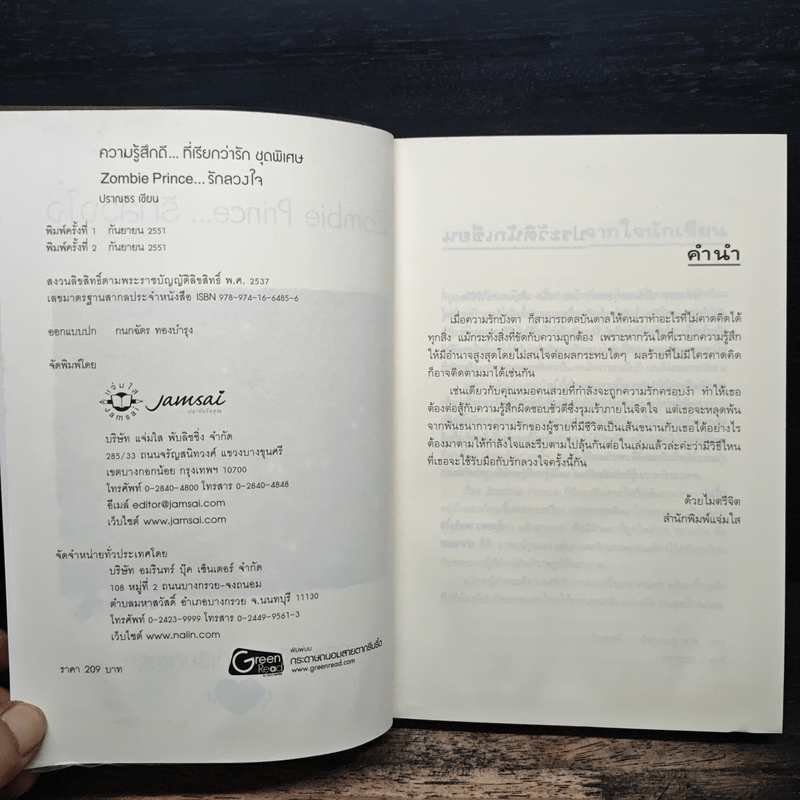 ความรู้สึกดี... ที่เรียกว่ารัก ชุดพิเศษ
Zombie Prince... รักลวงใจ
ปราณธร เขียน
พิมพ์ครั้งที่ 1 กันยายน 2551
พิมพ์ครั้งที่ 2 กันยายน 2551
สงวนลิขสิทธิ์ตามพระราชบัญญัติลิขสิทธิ์ พ.ศ. 2537
เลขมาตรฐานสากลประจำหนังสือ ISBN 978-974-16-6485-6
ออกแบบปก กนกฉัตร ทองบำรุง
จัดพิมพ์โดย
แจ่มใส
Jamsai
jamsai
บริษัท แจ่มใส พับลิชชิ่ง จำกัด
285/33 ถนนจรัญสนิทวงศ์ แขวงบางขุนศรี
เขตบางกอกน้อย กรุงเทพฯ 10700
โทรศัพท์ 0-2840-4800 โทรสาร 0-2840-4848
อีเมล์ editor@jamsai.com
เว็บไซต์ www.jamsai.com
จัดจำหน่ายทั่วประเทศโดย
บริษัท อมรินทร์ บุ๊ค เซ็นเตอร์ จำกัด
108 หมู่ที่ 2 ถนนบางกรวย-จงถนอม
ตำบลมหาสวัสดิ์ อำเภอบางกรวย จ.นนทบุรี 11130
โทรศัพท์ 0-2423-9999 โทรสาร 0-2449-9561-3
เว็บไซต์ www.naiin.com
ราคา 209 บาท
Green Read
พิมพ์บน
กระดาษถนอมสายตากรีนรี้ด
www.greenread.com
คำนำ
เมื่อความรักบังตา ก็สามารถดลบันดาลให้คนเราทำอะไรที่ไม่คาดคิดได้
ทุกสิ่ง แม้กระทั่งสิ่งที่ขัดกับความถูกต้อง เพราะหากวันใดที่เรายกความรู้สึก
ให้มีอำนาจสูงสุดโดยไม่สนใจต่อผลกระทบใดๆ ผลร้ายที่ไม่มีใครคาดคิด
ก็อาจติดตามมาได้เช่นกัน
เช่นเดียวกับคุณหมอคนสวยที่กำลังจะถูกความรักครอบงำ ทำให้เธอ
ต้องต่อสู้กับความรู้สึกผิดชอบชั่วดีซึ่งรุมเร้าภายในจิตใจ แต่เธอจะหลุดพ้น
จากพันธนาการความรักของผู้ชายที่มีชีวิตเป็นเส้นขนานกับเธอได้อย่างไร
ต้องมาตามให้กำลังใจและรีบตามไปลุ้นกันต่อในเล่มแล้วล่ะค่ะว่ามีวิธีไหน
ที่เธอจะใช้รับมือกับรักลวงใจครั้งนี้กัน
ด้วยไมตรีจิต
สำนักพิมพ์แจ่มใส